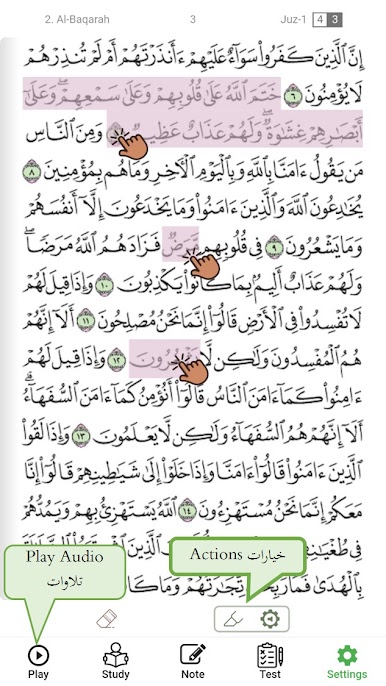 2. Al-Baqarah 3 Juz-1 4 3
إِنَّ ٱلَّذِينَ كَفَرُوا۟ سَوَآءٌ عَلَيْهِمْ ءَأَنذَرْتَهُمْ أَمْ لَمْ تُنذِرْهُمْ
لَا يُؤْمِنُونَ ٦ خَتَمَ ٱللَّهُ عَلَىٰ قُلُوبِهِمْ وَعَلَىٰ سَمْعِهِمْ ۖ وَعَلَىٰٓ
أَبْصَـٰرِهِمْ غِشَـٰوَةٌ ۖ وَلَهُمْ عَذَابٌ عَظِيمٌ وَمِنَ ٱلنَّاسِ
مَن يَقُولُ ءَامَنَّا بِٱللَّهِ وَبِٱلْيَوْمِ ٱلْـَٔاخِرِ وَمَا هُم بِمُؤْمِنِينَ ٨
يُخَـٰدِعُونَ ٱللَّهَ وَٱلَّذِينَ ءَامَنُوا۟ وَمَا يَخْدَعُونَ إِلَّآ أَنفُسَهُمْ
وَمَا يَشْعُرُونَ ٩ فِى قُلُوبِهِم مَّرَضٌ فَزَادَهُمُ ٱللَّهُ مَرَضًا ۖ
وَلَهُمْ عَذَابٌ أَلِيمٌۢ بِمَا كَانُوا۟ يَكْذِبُونَ ١٠ وَإِذَا قِيلَ لَهُمْ
لَا تُفْسِدُوا۟ فِى ٱلْأَرْضِ قَالُوٓا۟ إِنَّمَا نَحْنُ مُصْلِحُونَ ١١ أَلَآ إِنَّهُمْ
هُمُ ٱلْمُفْسِدُونَ وَلَـٰكِن لَّا يَشْعُرُونَ ١٢ وَإِذَا قِيلَ لَهُمْ
ءَامِنُوا۟ كَمَآ ءَامَنَ ٱلنَّاسُ قَالُوٓا۟ أَنُؤْمِنُ كَمَآ ءَامَنَ ٱلسُّفَهَآءُ ۗ
أَلَآ إِنَّهُمْ هُمُ ٱلسُّفَهَآءُ وَلَـٰكِن لَّا يَعْلَمُونَ ١٣ وَإِذَا لَقُوا۟
ٱلَّذِينَ ءَامَنُوا۟ قَالُوٓا۟ ءَامَنَّا وَإِذَا خَلَوْا۟ إِلَىٰ شَيَـٰطِينِهِمْ قَالُوٓا۟ إِنَّا
مَعَكُمْ إِنَّمَا نَحْنُ مُسْتَهْزِءُونَ ١٤ ٱللَّهُ يَسْتَهْزِئُ بِهِمْ وَيَمُدُّهُمْ
فِى ٱلَّذِينَ
بِٱلْهُدَىٰ فَمَا رَبِحَت تِّجَـٰرَتُهُمْ وَمَا
Play Audio
تلاوات
Actions خيارات
Play Study Note Test Settings